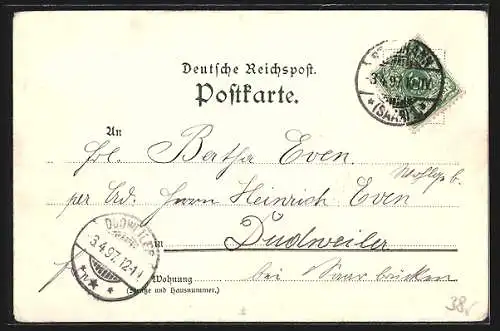 Deutsche Reichspost.
Postkarte.
ST. JOHANN
3.4.97. 12-1N.
* (SAAR) *
An
Frl. Bertha Even.
per Ad. Herrn Heinrich Even
in Dudweiler
bei Saarbrücken
Wohnung
(Straße und Hausnummer.)
DUDWEILER
3.4.97. 12-1N
38,-